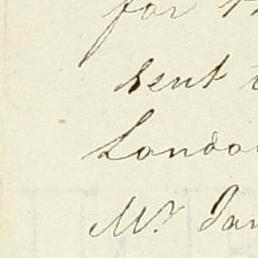 for
sent
London
Mr. Jan